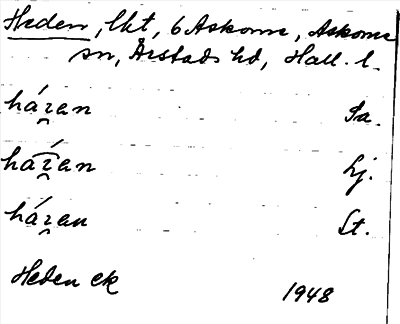 Heden, lkt, 6 Askome, Askome
sn, Årstads hd, Hall. l.
há̯ran Sa.
há̯ran Lj.
há̯ran St.
Heden ek 1948